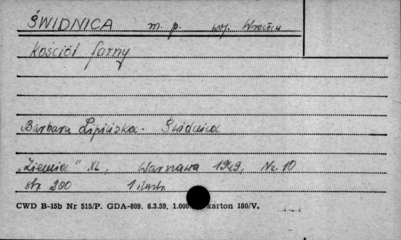 ŚWIDNICA m. p. woj. Wrocław
Kościół farny
Barbara Lipińska - Świdnica
"Ziemia" XL, Warszawa 1949, Nr. 10
str. 200 1 ilustr.
CWD B-15b Nr 515/P. GDA-609. 6.3.50. 1.000 karton 180/V.